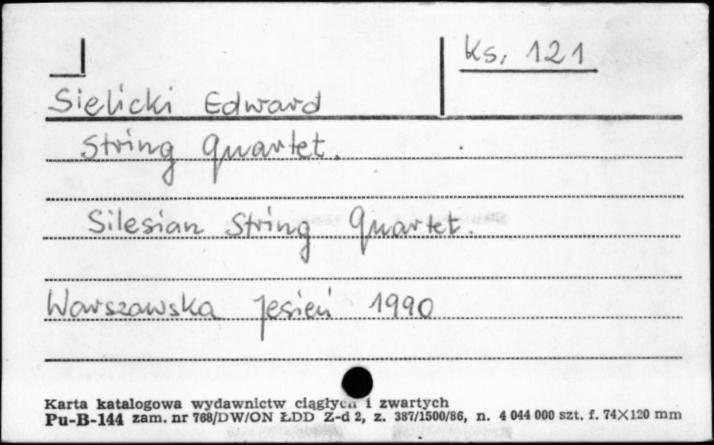 Ks. 121
Sielicki Edward
String Quartet.
Silesian String Quartet.
Warszawska Jesień 1990
Karta katalogowa wydawnictw ciągłych i zwartych
Pu-B-144 zam. nr 768/DW/ON ŁDD Z-d 2, z. 387/1500/86, n. 4 044 000 szt. f. 74×120 mm